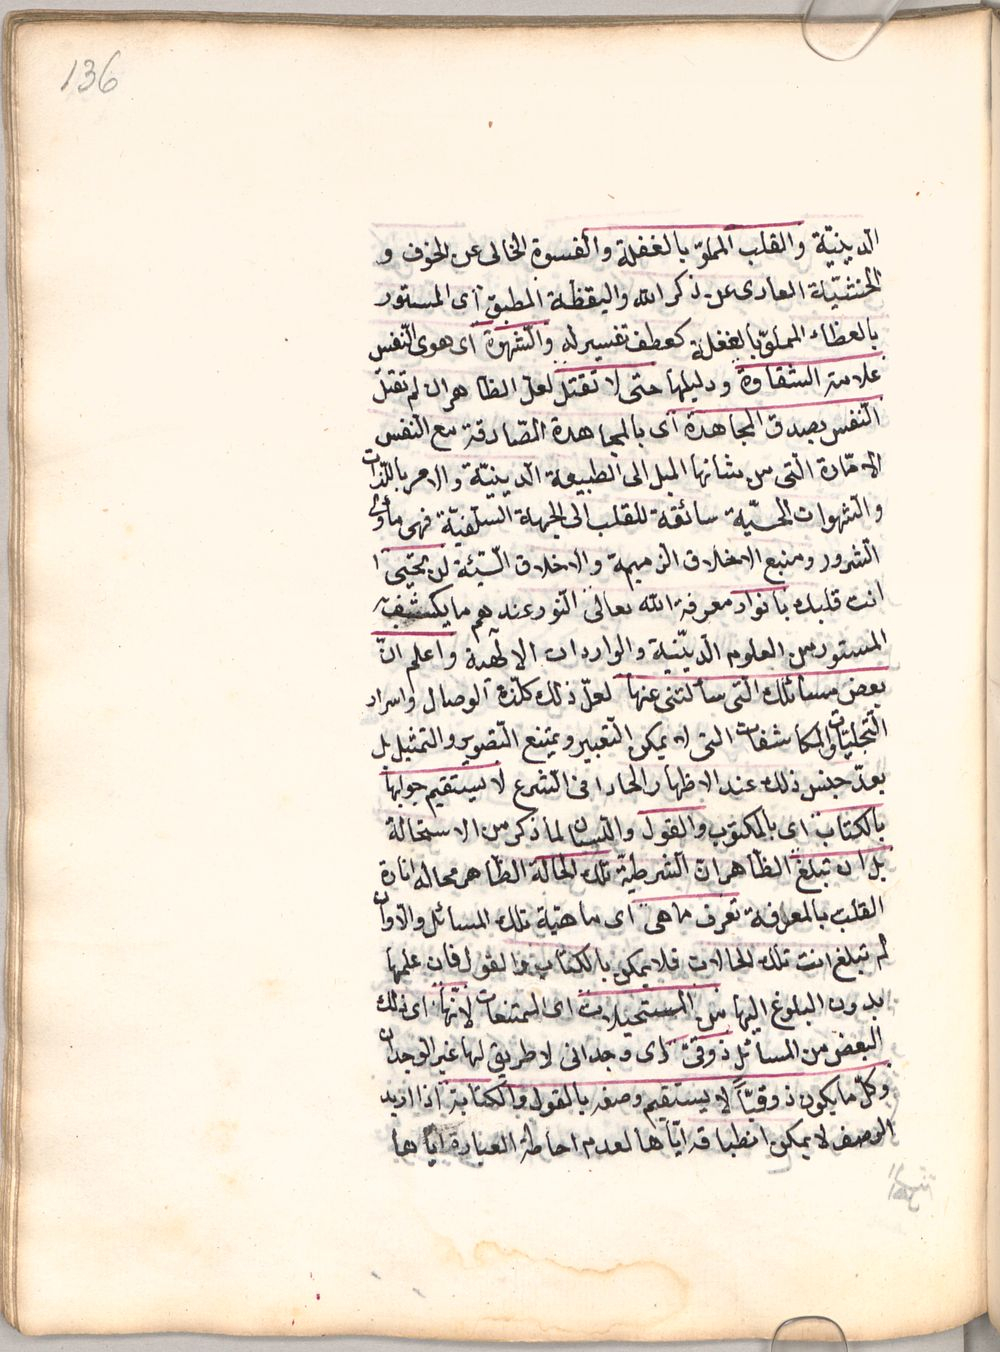 136
الدينيّة والقلب المملوّ بالغفلة والقسوة الخالى عن الخوف و
الخشيّة العارى عن ذكر الله واليقظة المطبق اى المستور
بالغطاء المملوّ بالغفلة كعطف تفسير له والشهوة اى هوى النفس
علامة الشقاوة ودليلها حتى لا تقتل لعلّ الظاهر ان لم تقتل
النفس بصدق المجاهدة اى بالمجاهدة الصّادقة مع النفس
الامّارة الّتى من شانها الميل الى الطبيعة الدينيّة والامر باللّذات
والشهوات الحسيّة سائقة للقلب الى الجهة السّفليّة فهى مأوى
الشرور ومنبع الاخلاق الذميمة والاخلاق السّيئة لن يحيى ا
انت قلبك بانوار معرفة الله تعالى النّور عندهم ما يكشف به
المستور من العلوم الدينيّة والواردات الالٰهية واعلم انّ
بعض مسائلك الّتى سألتنى عنها لعلّ ذلك كلذة الوصال واسرار
التجليّات والمكاشفات التى لا يمكن التّعبير ويمتنع التّصوير والتمثيل بل
يعدّ جنس ذلك عند الاظهار الحادا فى الشرع لا يستقيم جوابها
بالكتاب اى بالمكتوب والقول واللسان لما ذكر من الاستحالة
بل ان تبلغ الظاهر ان الشرطيّة تلك الحالة الظّاهر محاله انارة
القلب بالمعرفة تعرف ما هى اى ماهيّة تلك المسائل والّا وان
لم تبلغ انت تلك الحالات فلا يمكن بالكتاب والقول فان علمها
بدون البلوغ اليها من المستحيلات اى الممتنعات لانّها اى ذلك
البعض من المسائل ذوقىّ اى وجدانى لا طريق لها غير الوجدان
وكلّ ما يكون ذوقيّاً لا يستقيم وصفه بالقول والكتابة اذا اريد
الوصف لا يمكن انطباقه ايّاها لعدم احاطة العبارة ايّاها